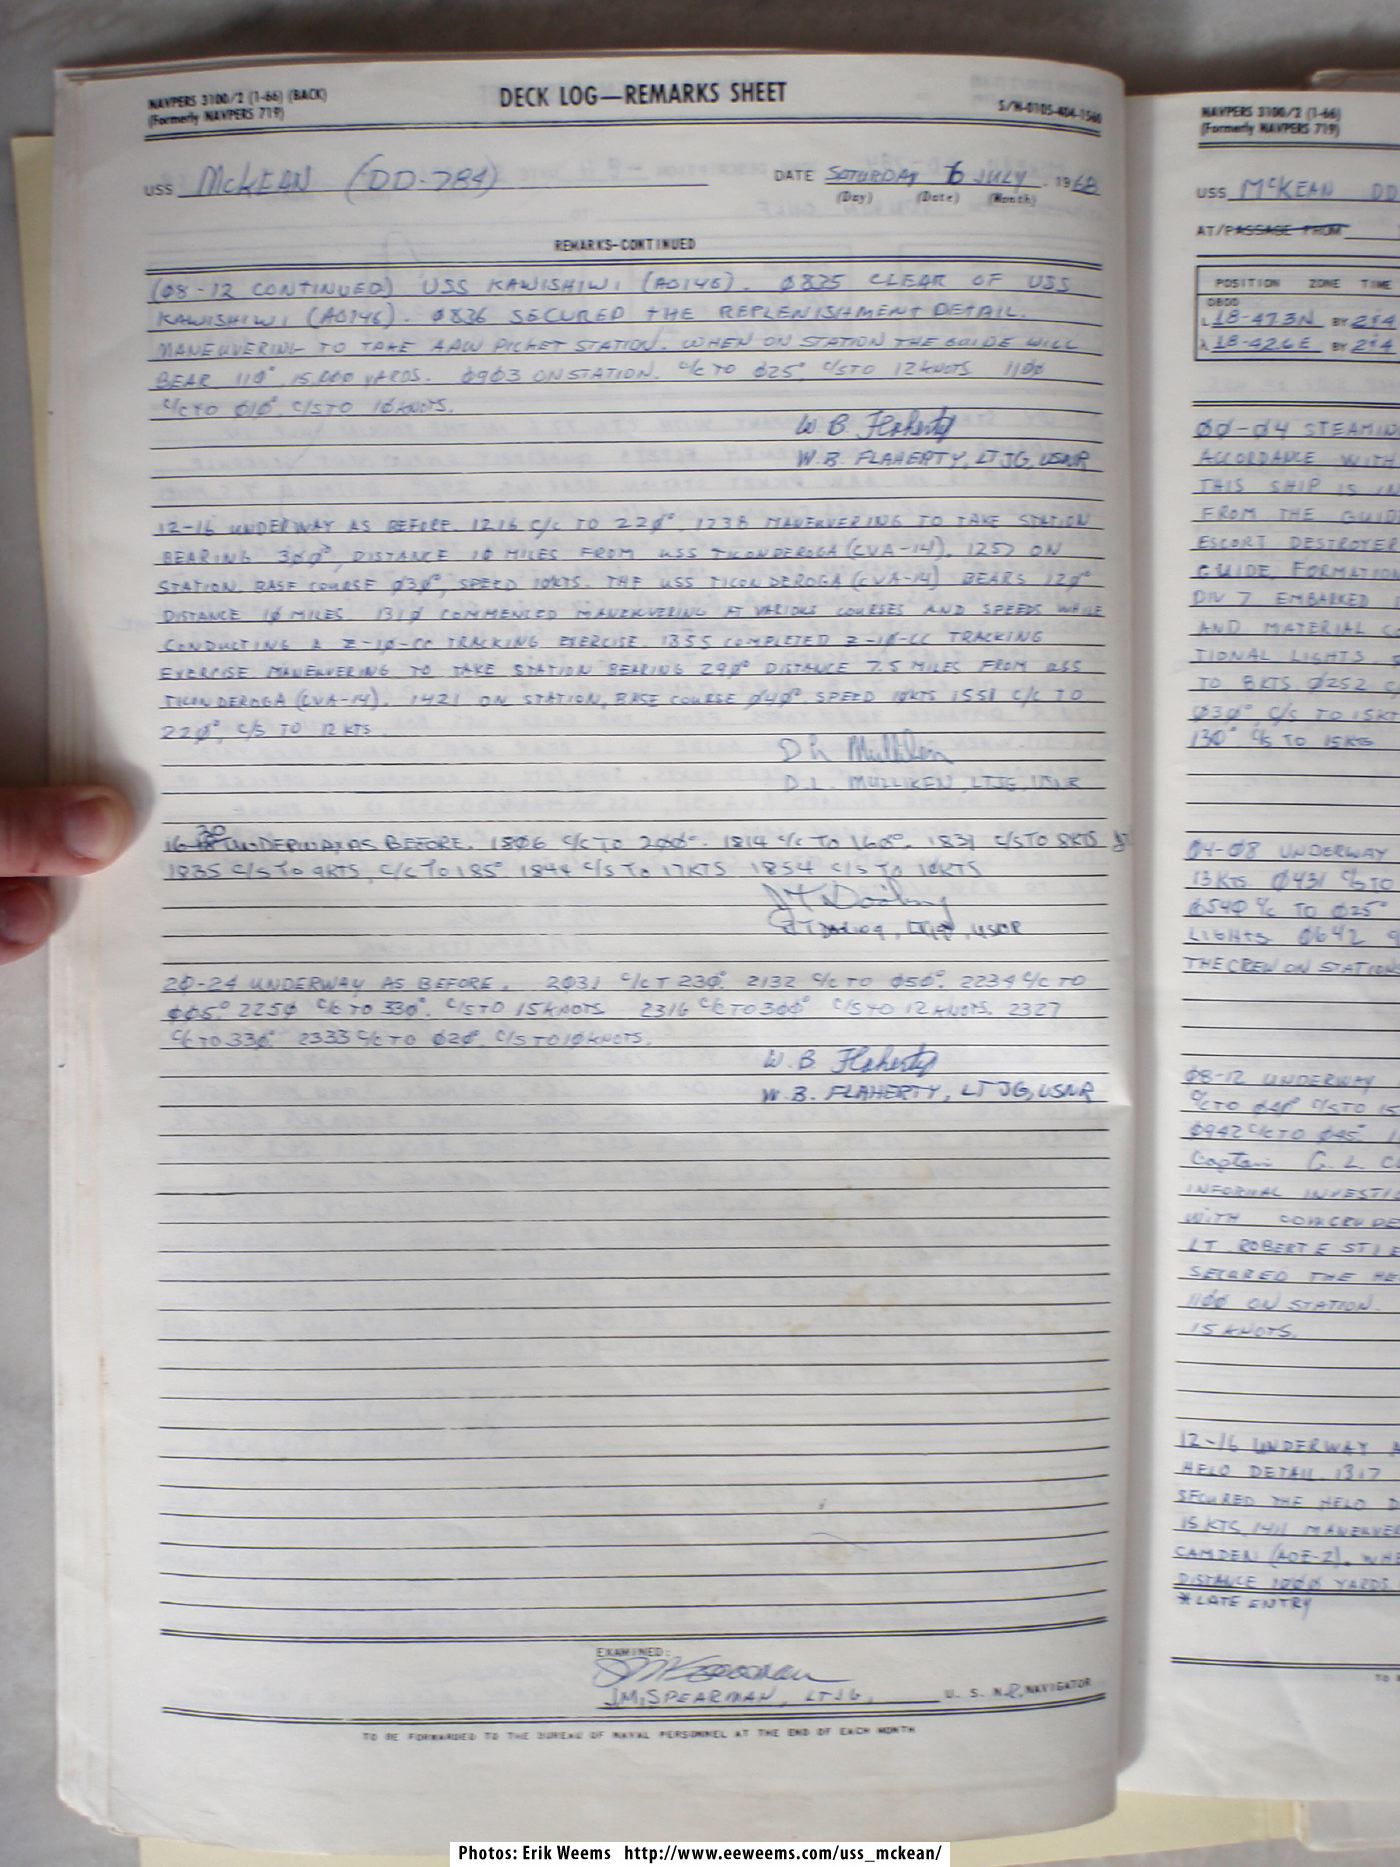 NAVPERS 3100/2 (1-66) (BACK)
(Formerly NAVPERS 719)
DECK LOG—REMARKS SHEET
S/N-0105-404-1560
USS McKEAN (DD-784)
DATE SATURDAY 6 JULY, 1968
(Day) (Date) (Month)
REMARKS—CONTINUED
(08-12 CONTINUED) USS KAWISHIWI (AO146). Ø825 CLEAR OF USS
KAWISHIWI (AO146). Ø836 SECURED THE REPLENISHMENT DETAIL.
MANEUVERING TO TAKE AAW PICKET STATION. WHEN ON STATION THE GUIDE WILL
BEAR 110°, 15,000 YARDS. Ø9Ø3 ON STATION. C/C TO Ø25° C/S TO 12 KNOTS 11ØØ
C/C TO Ø1Ø°, C/S TO 1Ø KNOTS.
W. B. Flaherty
W. B. FLAHERTY, LTJG, USNR
12-16 UNDERWAY AS BEFORE. 1216 C/C TO 22Ø°. 1238 MANEUVERING TO TAKE STATION
BEARING 3ØØ°, DISTANCE 1Ø MILES FROM USS TICONDEROGA (CVA-14). 1257 ON
STATION, BASE COURSE Ø3Ø°, SPEED 10KTS. THE USS TICONDEROGA (CVA-14) BEARS 12Ø°
DISTANCE 1Ø MILES 131Ø COMMENCED MANEUVERING AT VARIOUS COURSES AND SPEEDS WHILE
CONDUCTING A Z-1Ø-CC TRACKING EXERCISE. 1355 COMPLETED Z-1Ø-CC TRACKING
EXERCISE MANEUVERING TO TAKE STATION BEARING 29Ø° DISTANCE 7.5 MILES FROM USS
TICONDEROGA (CVA-14). 1421 ON STATION, BASE COURSE Ø4Ø° SPEED 1ØKTS 1551 C/C TO
22Ø°, C/S TO 12 KTS
D L Mulliken
D. L. MULLIKEN, LTJG, USNR
16-20 UNDERWAY AS BEFORE. 18Ø6 C/C TO 2ØØ°. 1814 C/C TO 16Ø°. 1831 C/S TO 8KTS
1835 C/S TO 9KTS, C/C TO 185° 1844 C/S TO 17KTS 1854 C/S TO 1ØKTS
LTJG, USNR
2Ø-24 UNDERWAY AS BEFORE. 2Ø31 C/C T 23Ø°. 2132 C/C TO Ø5Ø°. 2234 C/C TO
ØØ5° 225Ø C/C TO 33Ø°. C/S TO 15 KNOTS 2316 C/C TO 3ØØ° C/S TO 12 KNOTS. 2327
C/C TO 33Ø°. 2333 C/C TO Ø2Ø°. C/S TO 1Ø KNOTS.
W. B Flaherty
W. B. FLAHERTY, LTJG, USNR
EXAMINED:
J.M. SPEARMAN, LTJG, U. S. N.R. NAVIGATOR
TO BE FORWARDED TO THE BUREAU OF NAVAL PERSONNEL AT THE END OF EACH MONTH
NAVPERS 3100/2 (1-66)
(Formerly NAVPERS 719)
USS McKEAN DD
AT/PASSAGE FROM
POSITION ZONE TIME
0800
L 18-47.3N BY 2+4
λ 18-42.6E BY 2+4
ØØ-Ø4 STEAMIN
ACCORDANCE WITH
THIS SHIP IS IN
FROM THE GUID
ESCORT DESTROYER
GUIDE. FORMATION
DIV 7 EMBARKED
AND MATERIAL C
TIONAL LIGHTS
TO 8KTS. Ø252 C
Ø3Ø°, C/S TO 15K
13Ø° C/S TO 15KTS
Ø4-Ø8 UNDERWAY
13 KTS Ø431 C/S TO
Ø54Ø C/C TO Ø25°
LIGHTS Ø642
THE CREW ON STATION
Ø8-12 UNDERWAY
C/C TO Ø4Ø° C/S TO 15
Ø942 C/C TO Ø45°
Captain G. L
INFORMAL INVESTI
WITH COMCRUDE
LT ROBERT E STI
SECURED THE HE
11ØØ ON STATION.
15 KNOTS.
12-16 UNDERWAY A
HELO DETAIL 1317
SECURED THE HELO D
15 KTS 1411 MANEUVE
CAMDEN (AOE-2). WHE
DISTANCE 1ØØØ YARDS
*LATE ENTRY
TO
Photos: Erik Weems http://www.eeweems.com/uss_mckean/